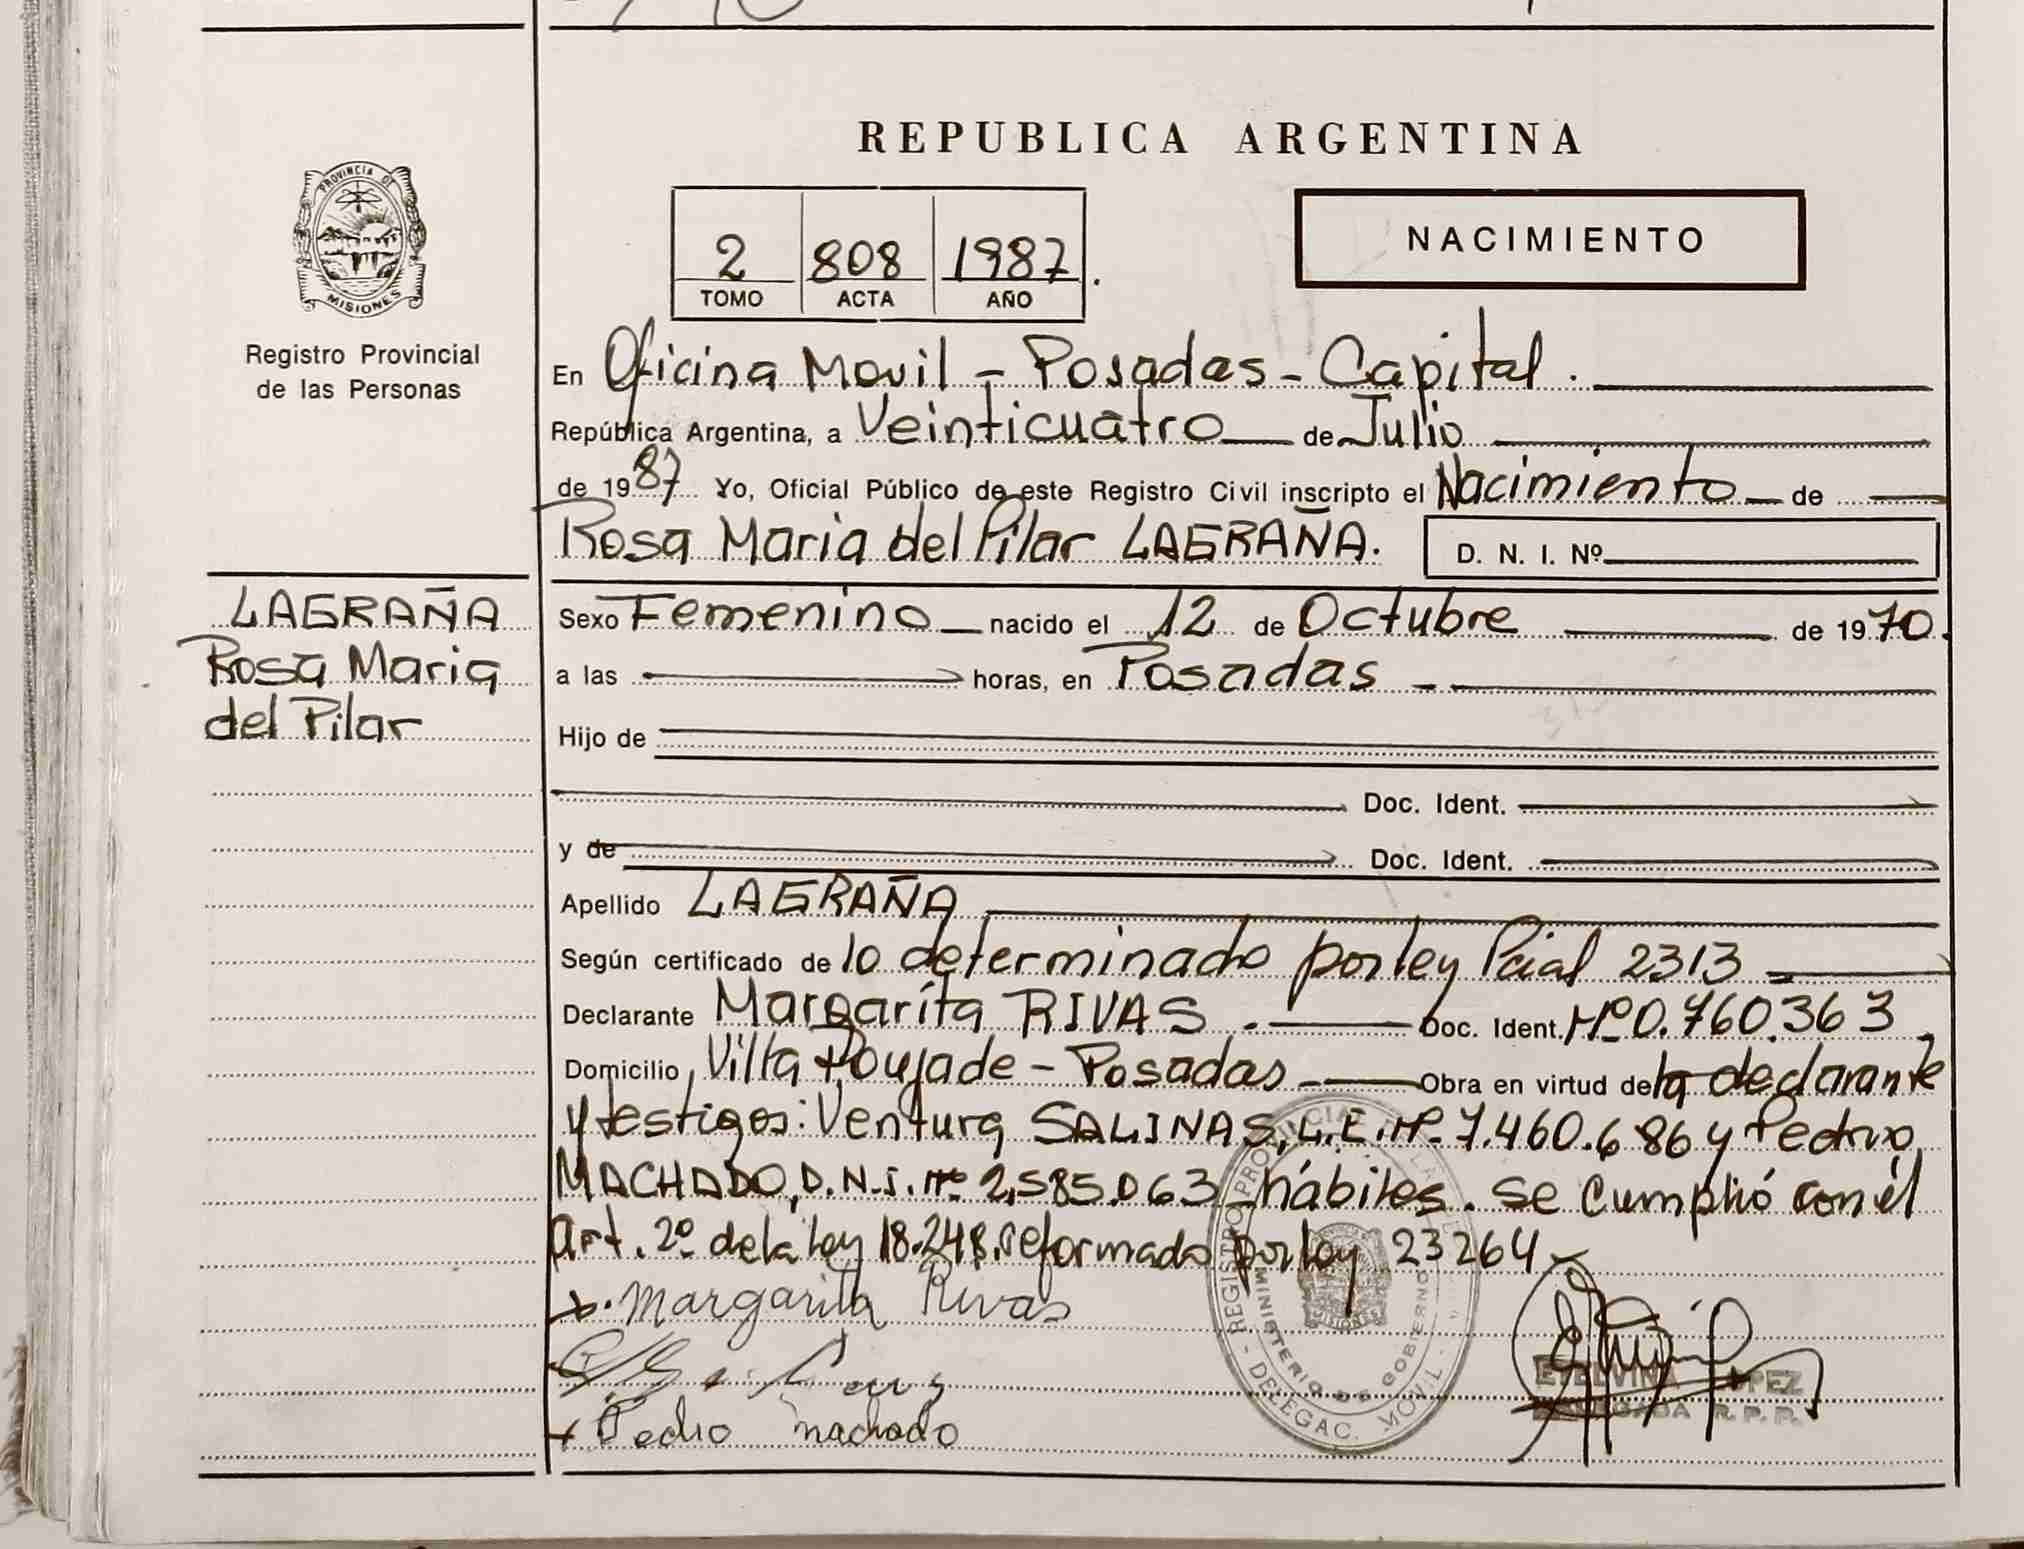 REPUBLICA ARGENTINA
PROVINCIA DE
MISIONES
Registro Provincial
de las Personas
2 808 1987
TOMO ACTA AÑO
NACIMIENTO
En Oficina Movil - Posadas - Capital.
República Argentina, a Veinticuatro de Julio
de 1987 Yo, Oficial Público de este Registro Civil inscripto el Nacimiento de
Rosa Maria del Pilar LAGRAÑA. D. N. I. Nº
LAGRAÑA
Rosa Maria
del Pilar
Sexo Femenino nacido el 12 de Octubre de 1970.
a las horas, en Posadas
Hijo de
Doc. Ident.
y de Doc. Ident.
Apellido LAGRAÑA
Según certificado de lo determinado por ley Pcial 2313
Declarante Margarita RIVAS. Doc. Ident. Nº 0.760.363
Domicilio Villa Poujade - Posadas Obra en virtud de la declarante
y testigos: Ventura SALINAS, L.E. Nº 7.460.686 y Pedro
MACHADO, D.N.I. Nº 2.585.063 hábiles. Se cumplió con el
art. 2º de la ley 18.248, reformado por ley 23264
Margarita Rivas
Pedro Machado
REGISTRO PROVINCIAL DE LAS
MINISTERIO DE GOBIERNO
MISIONES
- DELEGAC. MOVIL -
ETELVINA LOPEZ
R. P. P.